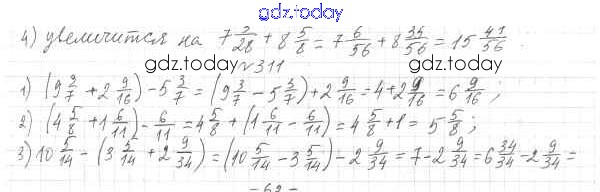 gdz.today
4) увеличится на 7 3/28 + 8 5/8 = 7 6/56 + 8 35/56 = 15 41/56.
gdz.today №311 gdz.today
1) (9 3/7 + 2 9/16) - 5 3/7 = (9 3/7 - 5 3/7) + 2 9/16 = 4 + 2 9/16 = 6 9/16;
2) (4 5/8 + 1 6/11) - 6/11 = 4 5/8 + (1 6/11 - 6/11) = 4 5/8 + 1 = 5 5/8;
3) 10 5/14 - (3 5/14 + 2 9/34) = (10 5/14 - 3 5/14) - 2 9/34 = 7 - 2 9/34 = 6 34/34 - 2 9/34 =
- 62 -